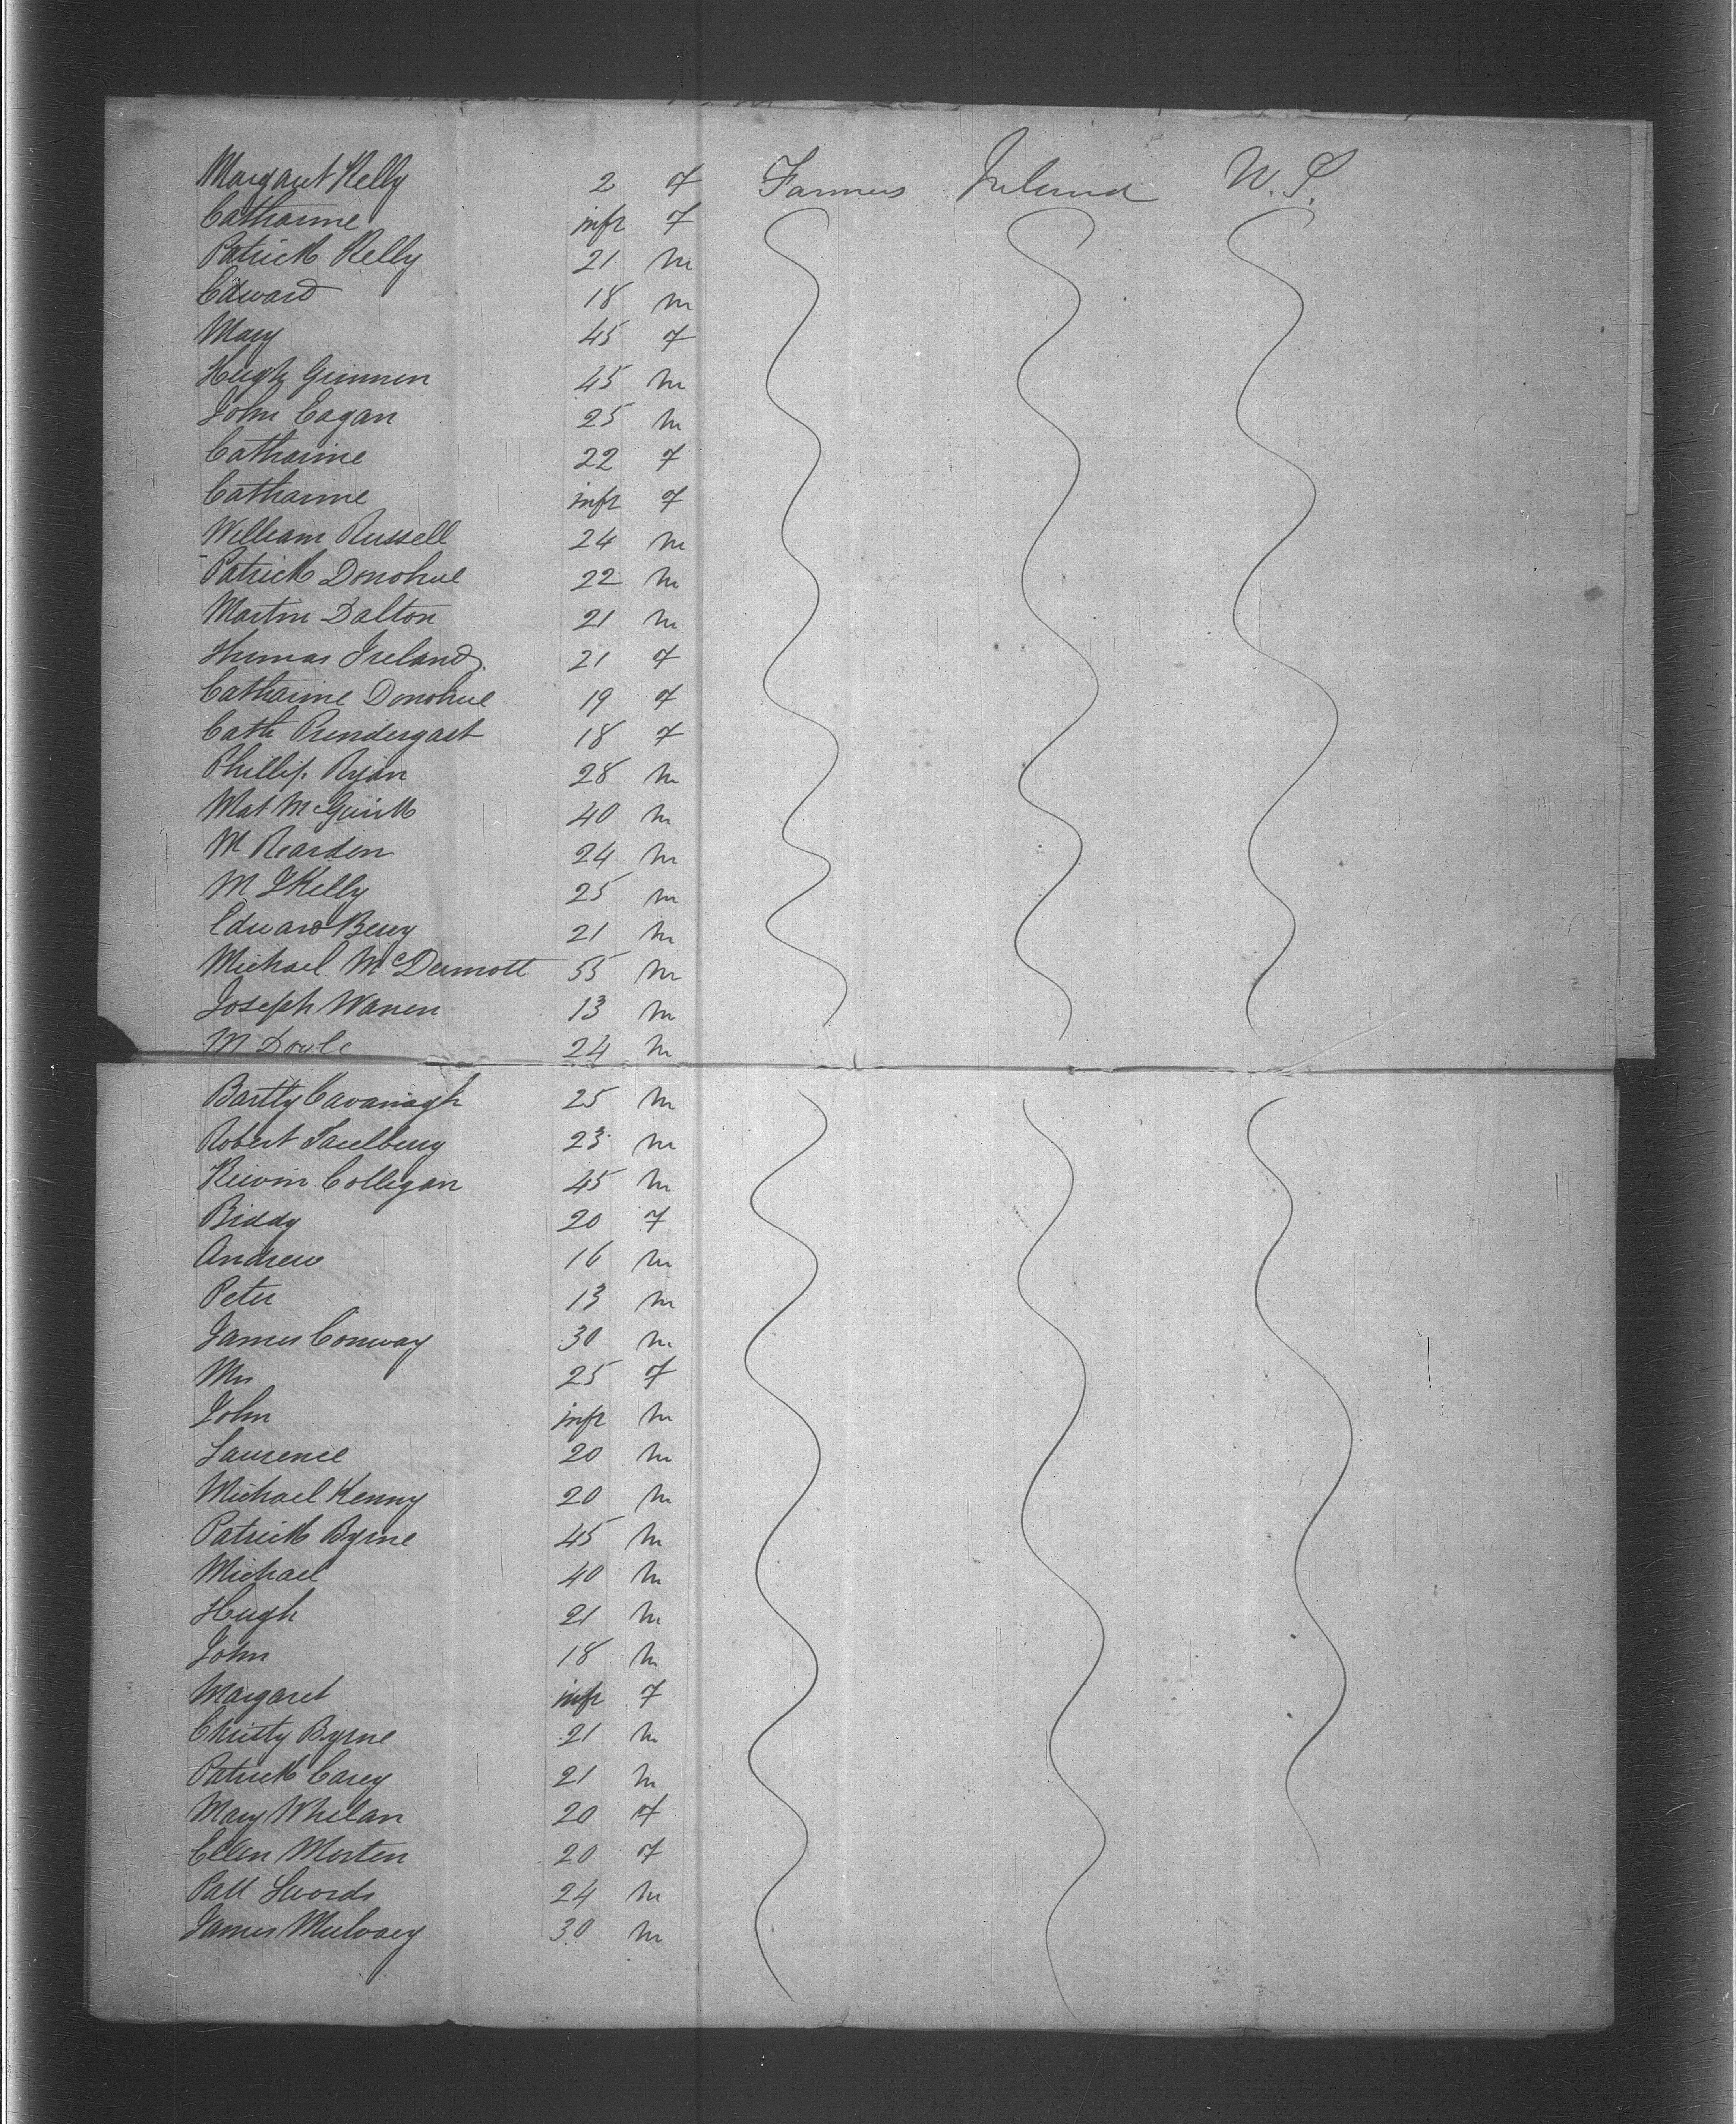 Margaret Kelly 2 f Farmers Ireland W. S.
Catharine inft f
Patrick Kelly 21 m
Edward 18 m
Mary 45 f
Hugh Grinnen 45 m
John Eagan 25 m
Catharine 22 f
Catharine inft f
William Russell 24 m
Patrick Donohue 22 m
Martin Dalton 21 m
Thomas Ireland 21 f
Catharine Donohue 19 f
Cath Prendergast 18 f
Phillip Ryan 28 m
Mat McGuirk 40 m
M Reardon 24 m
M J Kelly 25 m
Edward Berry 21 m
Michael McDermott 55 m
Joseph Warren 13 m
M Doyle 24 m
Bartly Cavanagh 25 m
Robert 23 m
Keivin Colligan 45 m
Biddy 20 f
Andrew 16 m
Peter 13 m
James Conway 30 m
Mrs 25 f
John inft m
Laurence 20 m
Michael Kenny 20 m
Patrick Byrne 45 m
Michael 40 m
Hugh 21 m
John 18 m
Margaret inft f
Christy Byrne 21 m
Patrick Carey 21 m
Mary Whelan 20 f
Ellen Morten 20 f
Patt Swords 24 m
James Mulvaey 30 m